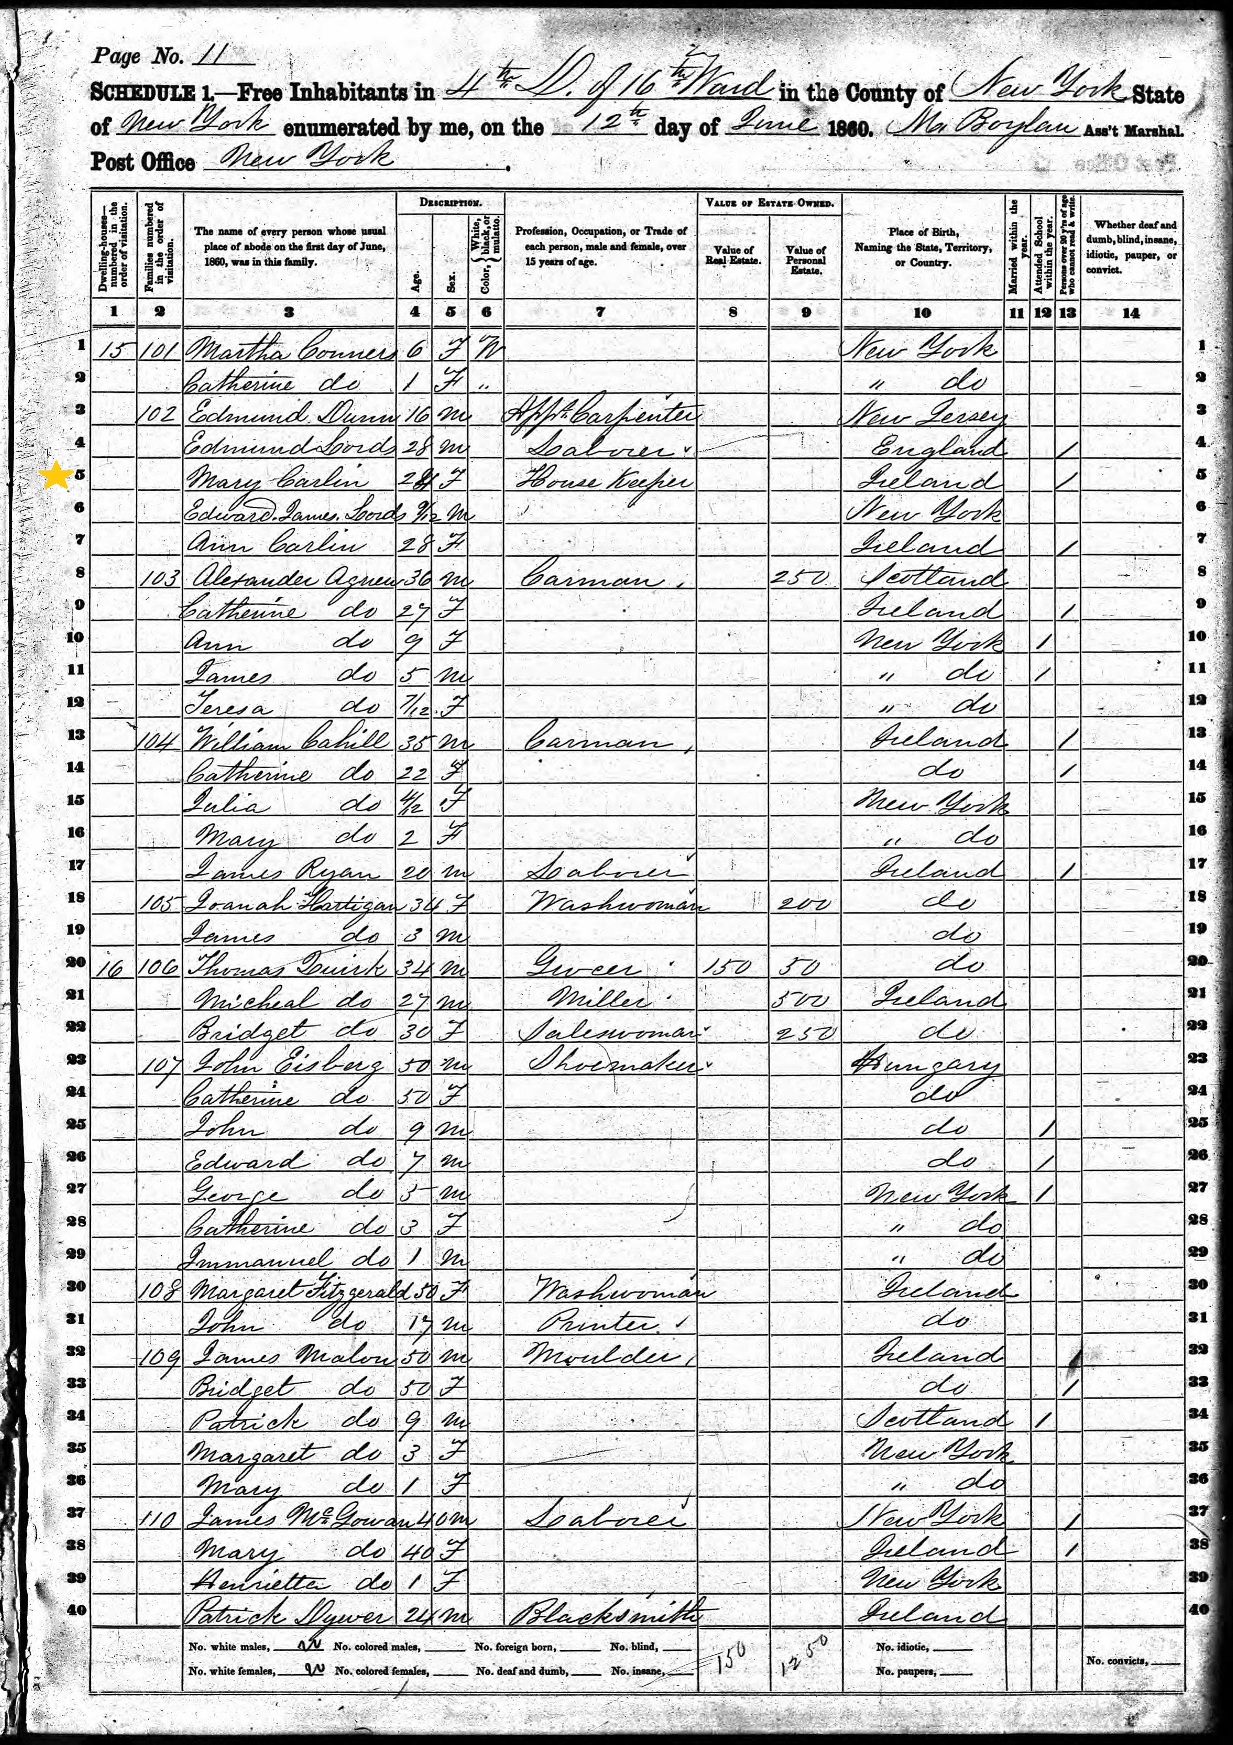 Page No. 11
SCHEDULE 1.—Free Inhabitants in 4th D. of 16th Ward in the County of New York State
of New York enumerated by me, on the 12th day of June 1860. Mr Boylan Ass't Marshal.
Post Office New York.
DESCRIPTION. VALUE OF ESTATE OWNED.
Dwelling-houses—numbered in the order of visitation. Families numbered in the order of visitation. The name of every person whose usual place of abode on the first day of June, 1860, was in this family. Age. Sex. Color, White, black, or mulatto. Profession, Occupation, or Trade of each person, male and female, over 15 years of age. Value of Real Estate. Value of Personal Estate. Place of Birth, Naming the State, Territory, or Country. Married within the year. Attended School within the year. Persons over 20 y'rs of age who cannot read & write. Whether deaf and dumb, blind, insane, idiotic, pauper, or convict.
1 2 3 4 5 6 7 8 9 10 11 12 13 14
1 15 101 Martha Conners 6 F W New York 1
2 Catherine do 1 F " " do 2
3 102 Edmund Dunn 16 m Appt Carpenter New Jersey 3
4 Edmund Lords 28 m Laborer England / 4
5 Mary Carlin F House Keeper Ireland / 5
6 Edward James Lords 9/12 M New York 6
7 Ann Carlin 28 F Ireland / 7
8 103 Alexander Agnew 36 m Carman 250 Scotland 8
9 Catherine do 27 F Ireland / 9
10 Ann do 9 F New York / 10
11 James do 5 m " do / 11
12 Teresa do 7/12 F " do 12
13 104 William Cahill 35 m Carman Ireland / 13
14 Catherine do 22 F do / 14
15 Julia do 4/12 F New York 15
16 Mary do 2 F " do 16
17 James Ryan 20 m Laborer Ireland / 17
18 105 Joanah Hartigan 34 F Washwoman 200 do 18
19 James do 3 m do 19
20 16 106 Thomas Quirk 34 m Grocer 150 50 do 20
21 Micheal do 27 m Miller 500 Ireland 21
22 Bridget do 30 F Saleswoman 250 do 22
23 107 John Eisberg 50 m Shoemaker Hungary 23
24 Catherine do 50 F do 24
25 John do 9 m do / 25
26 Edward do 7 m do / 26
27 George do 5 m New York / 27
28 Catherine do 3 F " do 28
29 Immanuel do 1 m " do 29
30 108 Margaret Fitzgerald 50 F Washwoman Ireland 30
31 John do 17 m Printer do 31
32 109 James Malon 50 m Moulder Ireland / 32
33 Bridget do 50 F do / 33
34 Patrick do 9 m Scotland / 34
35 Margaret do 3 F New York 35
36 Mary do 1 F " do 36
37 110 James McGowan 40 m Laborer New York / 37
38 Mary do 40 F Ireland / 38
39 Henrietta do 1 F New York 39
40 Patrick Dywer 24 m Blacksmith Ireland 40
No. white males, No. colored males, No. foreign born, No. blind, 150 1250 No. idiotic,
No. white females, No. colored females, No. deaf and dumb, No. insane, No. paupers, No. convicts,